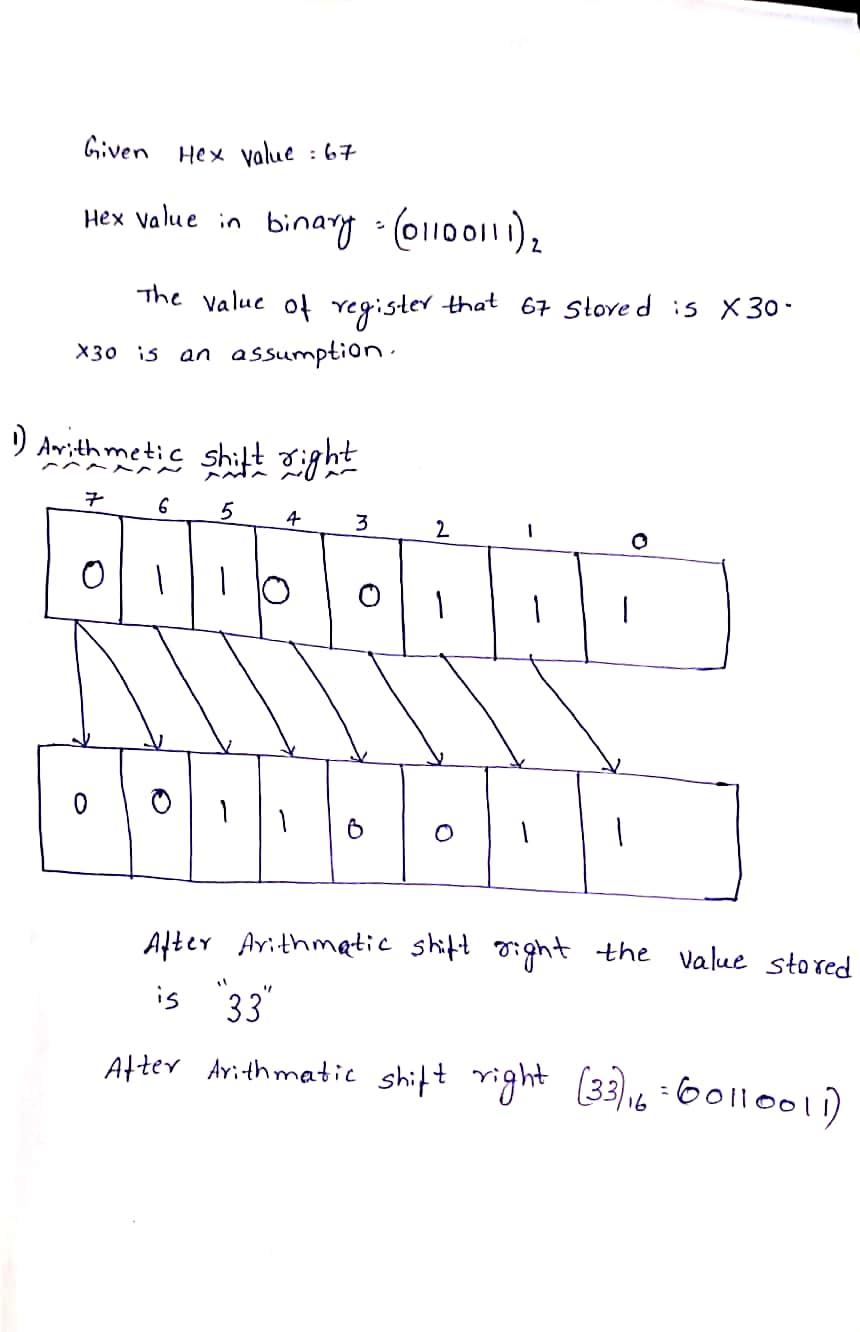 Given Hex value : 67
Hex value in binary = (01100111)2
The value of register that 67 Stored is X30.
X30 is an assumption.
1) Arithmetic shift right
7 6 5 4 3 2 1 0
0 1 1 0 0 1 1 1
0 0 1 1 0 0 1 1
After Arithmatic shift right the value stored
is "33"
After Arithmatic shift right (33)16 = (00110011)